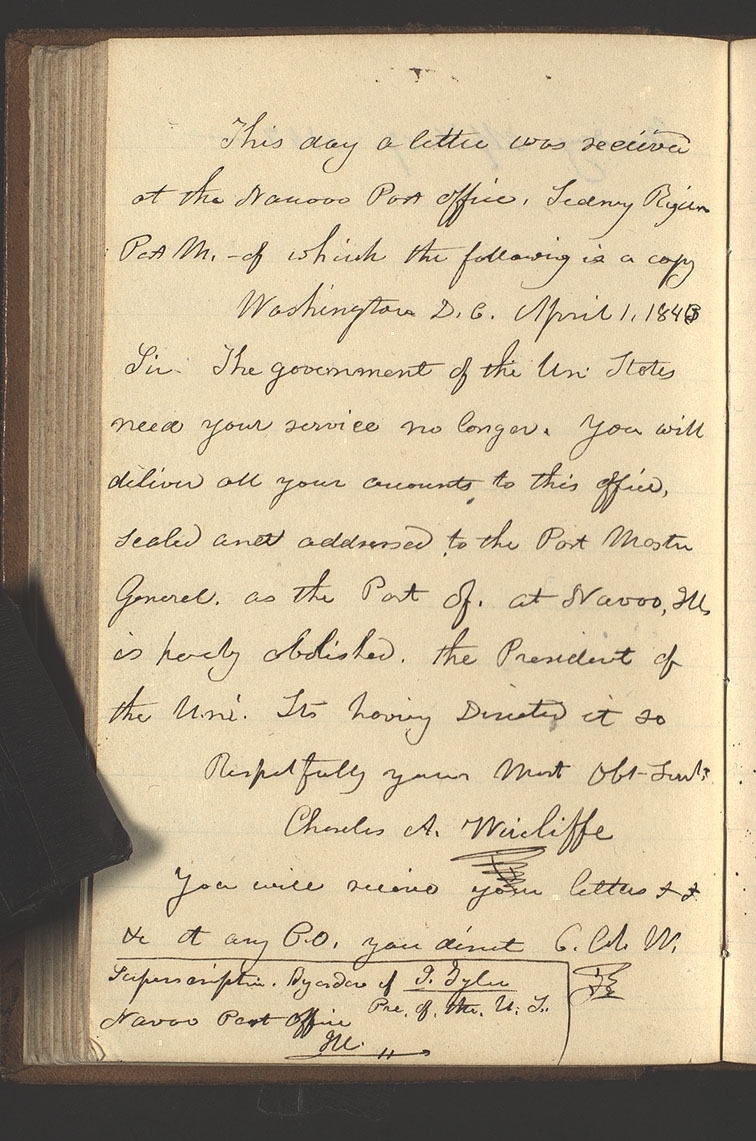 This day a letter was received
at the Nauvoo Post office, Sidney Rigdon
Post M. - of which the following is a copy
Washington D. C. April 1, 1843
Sir. The government of the Uni States
need your service no longer. You will
deliver all your accounts to this office,
sealed and addressed to the Post Master
General. as the Post of. at Navoo, Ill
is herby abolished. the President of
the Uni. Sts having Directed it so
Respetfully yours Most Obt- Servt.
Charles A. Wicliffe
You will recieve your letters & &
&c at any P.O. you direct C. A. W.
Superscription. By order of J. Tyler
Navoo Post Office Pre. of. the. U. S.
Ill.